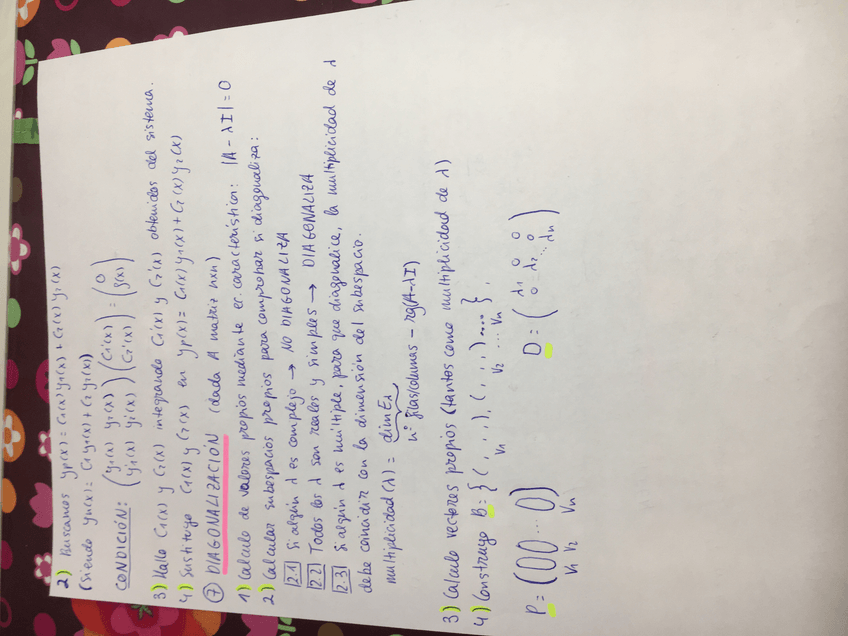 2) Buscamos yp(x) = C₁(x) y₁(x) + C₂(x) y₂(x)
(Siendo yh(x) = C₁ y₁(x) + C₂ y₂(x))
CONDICIÓN: ( y₁(x) y₂(x) ) ( C₁'(x) ) = ( 0 )
( y₁'(x) y₂'(x) ) ( C₂'(x) ) = ( g(x) )
3) Hallo C₁(x) y C₂(x) integrando C₁'(x) y C₂'(x) obtenidos del sistema.
4) Sustituyo C₁(x) y C₂(x) en yp(x) = C₁(x) y₁(x) + C₂(x) y₂(x)
⑦ DIAGONALIZACIÓN (dada A matriz nxn)
1) Cálculo de valores propios mediante ec. característica: |A - λI| = 0
2) Calcular subespacios propios para comprobar si diagonaliza:
2.1 Si algún λ es complejo → NO DIAGONALIZA
2.2 Todos los λ son reales y simples → DIAGONALIZA
2.3 Si algún λ es múltiple, para que diagonalice, la multiplicidad de λ
debe coincidir con la dimensión del subespacio.
multiplicidad (λ) = dim Eλ
nº filas/columnas - rg(A-λI)
3) Calculo vectores propios (tantos como multiplicidad de λ)
4) Construyo B = { ( , , , ), ( , , , ) .... } .
V₁ V₂ ... Vn
P = ( 0 0 ... 0 ) D = ( λ₁ 0 0
0 λ₂ 0
... λn )
V₁ V₂ Vn